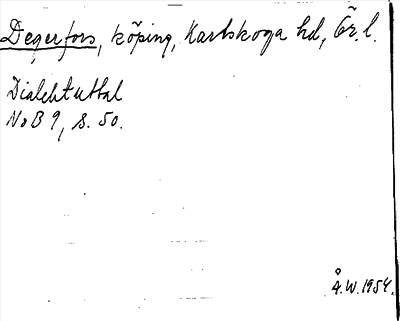 Degerfors, köping, Karlskoga hd, Ör. l.
Dialektuttal
NoB 9, s. 50.
Å.W. 1954.